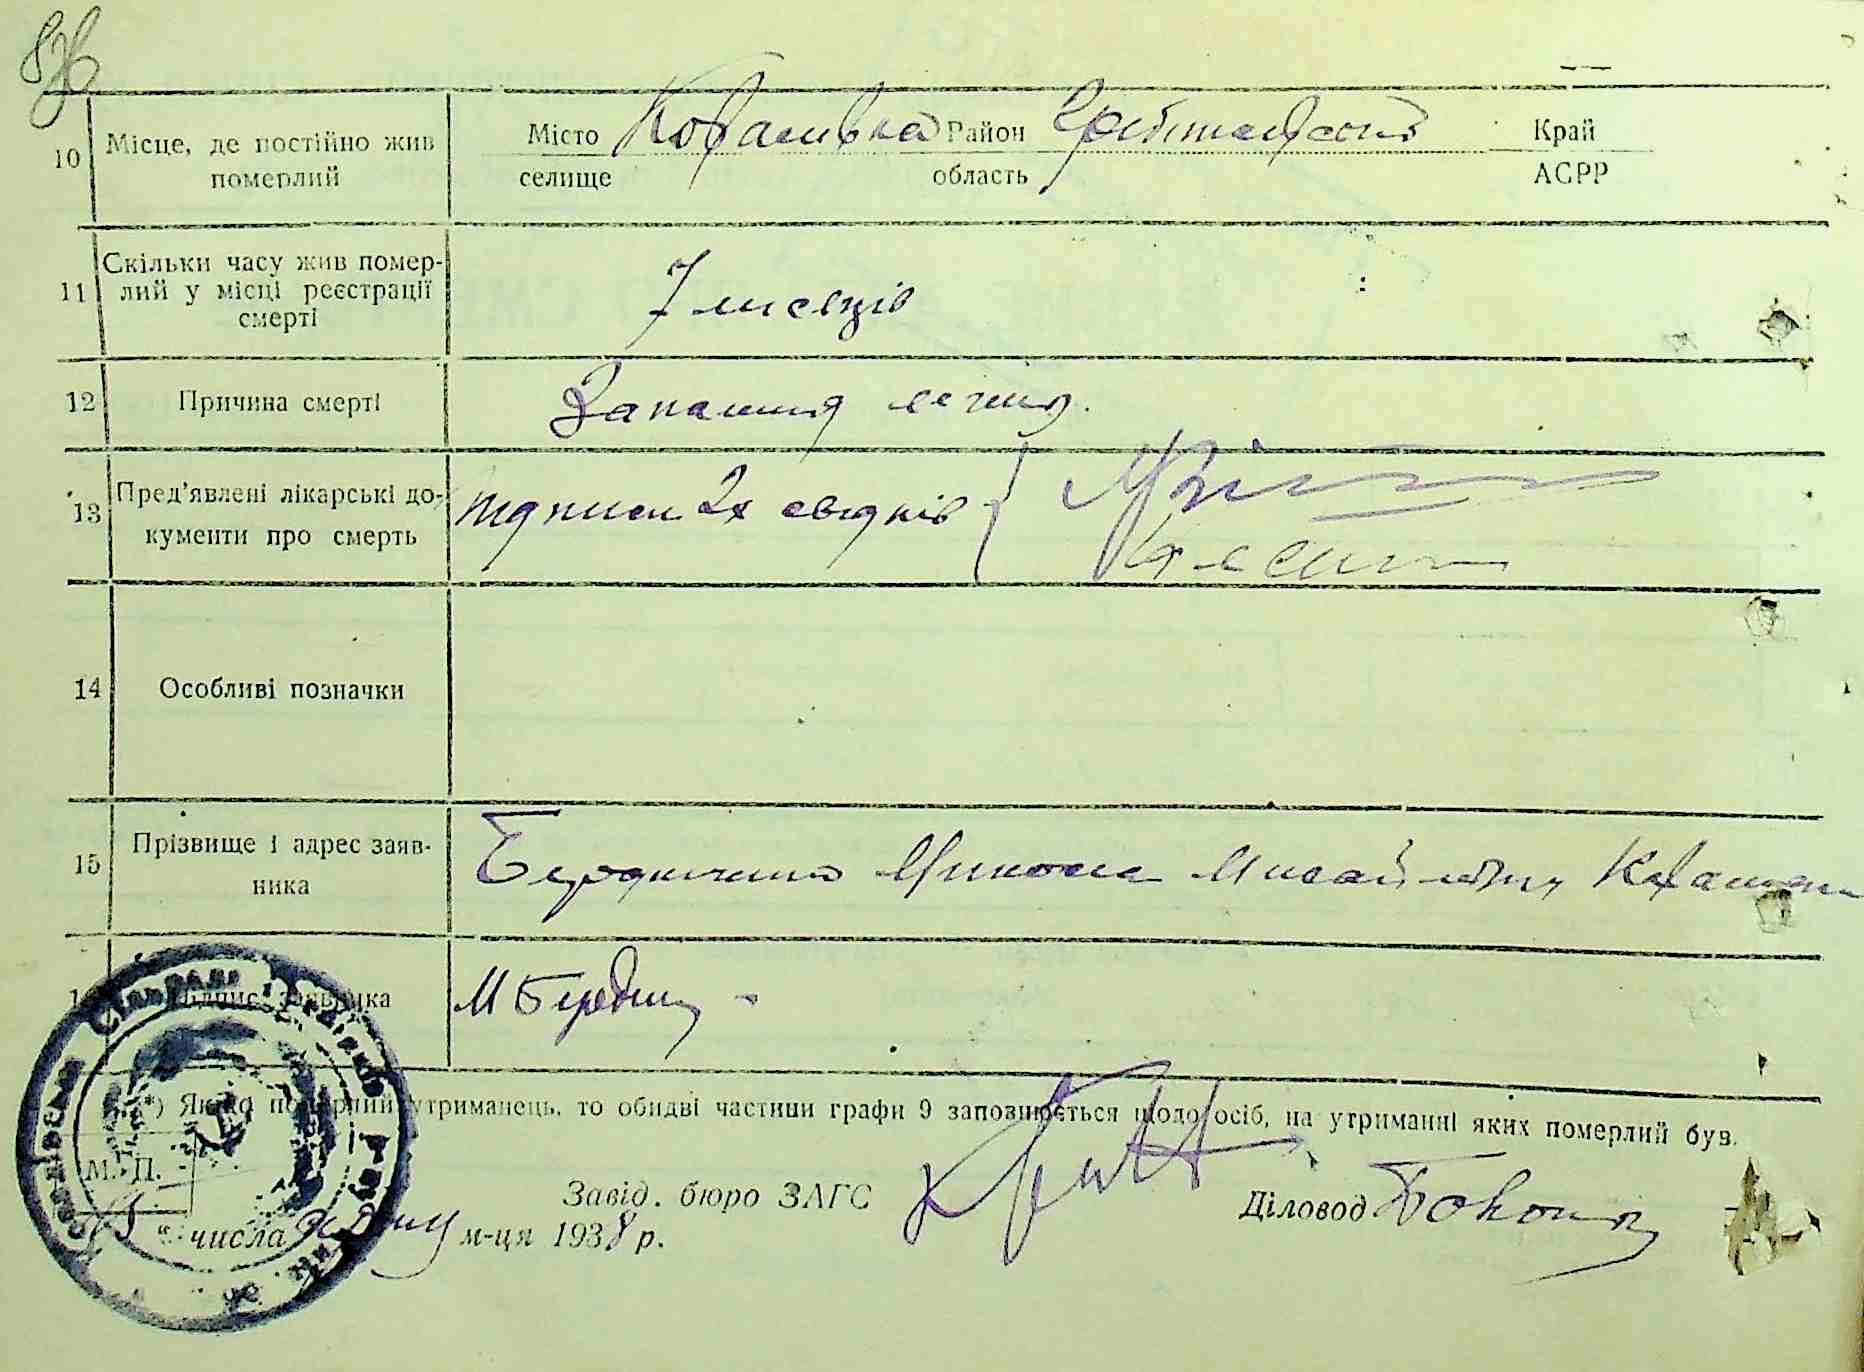 10 Місце, де постійно жив Місто Ковалівка Район Край
померлий селище область АСРР
11 Скільки часу жив помер-
лий у місці реєстрації
смерті 7 місяців
12 Причина смерті Запалиня легнів.
13 Пред'явлені лікарські до-
кументи про смерть Підписи 2х свідків
14 Особливі позначки
15 Прізвище і адрес заяв-
ника Микола Михайлович
Підпис заявника
*) Якщо померлий утриманець, то обидві частини графи 9 заповнюється щодо осіб, на утриманні яких померлий був.
М. П.
Завід. бюро ЗАГС Діловод
числа м-ця 1938 р.